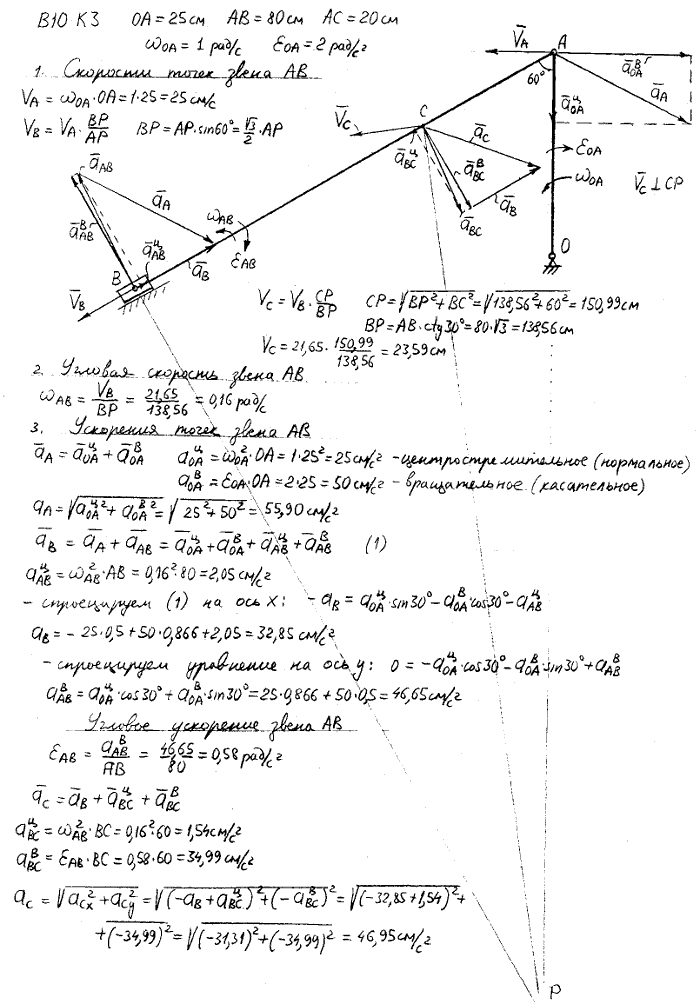 В10 К3 ОА=25см АВ=80см АС=20см
ω_ОА=1 рад/с ε_ОА=2 рад/с²
1. Скорости точек звена АВ
V_A=ω_ОА·ОА=1·25=25см/с
V_B=V_A·BP/AP BP=AP·sin60°=√3/2·AP
V̄_A
A
ā_ОА^В
ā_A
60°
ā_ОА^ц
C
V̄_C
ā_C
ā_BC^ц
ā_BC^В
ā_B
ā_BC
ε_ОА
ω_ОА
V̄_C⊥CP
O
ā_AB
ā_A
ω_AB
ā_AB^В
ā_AB^ц
ε_AB
B
ā_B
V̄_B
V_C=V_B·CP/BP CP=√(BP²+BC²)=√(138,56²+60²)=150,99см
BP=AB·ctg30°=80·√3=138,56см
V_C=21,65·150,99/138,56=23,59см
2. Угловая скорость звена АВ
ω_AB=V_B/BP=21,65/138,56=0,16рад/с
3. Ускорения точек звена АВ
ā_A=ā_ОА^ц+ā_ОА^В a_ОА^ц=ω_ОА²·ОА=1·25²=25см/с² -центростремительное (нормальное)
a_ОА^В=ε_ОА·ОА=2·25=50см/с² -вращательное (касательное)
a_A=√(a_ОА^ц²+a_ОА^В²)=√(25²+50²)=55,90см/с²
ā_B=ā_A+ā_AB=ā_ОА^ц+ā_ОА^В+ā_AB^ц+ā_AB^В (1)
a_AB^ц=ω_AB²·AB=0,16²·80=2,05см/с²
-спроецируем (1) на ось х: -a_B=a_ОА^ц·sin30°-a_ОА^В·cos30°-a_AB^ц
a_B=-25·0,5+50·0,866+2,05=32,85см/с²
-спроецируем уравнение на ось у: 0=-a_ОА^ц·cos30°-a_ОА^В·sin30°+a_AB^В
a_AB^В=a_ОА^ц·cos30°+a_ОА^В·sin30°=25·0,866+50·0,5=46,65см/с²
Угловое ускорение звена АВ
ε_AB=a_AB^В/AB=46,65/80=0,58рад/с²
ā_C=ā_B+ā_BC^ц+ā_BC^В
a_BC^ц=ω_AB²·BC=0,16²·60=1,54см/с²
a_BC^В=ε_AB·BC=0,58·60=34,99см/с²
a_C=√(a_Cx²+a_Cy²)=√((-a_B+a_BC^ц)²+(-a_BC^В)²)=√((-32,85+1,54)²+
+(-34,99)²=√((-31,31)²+(-34,99)²)=46,95см/с²
P